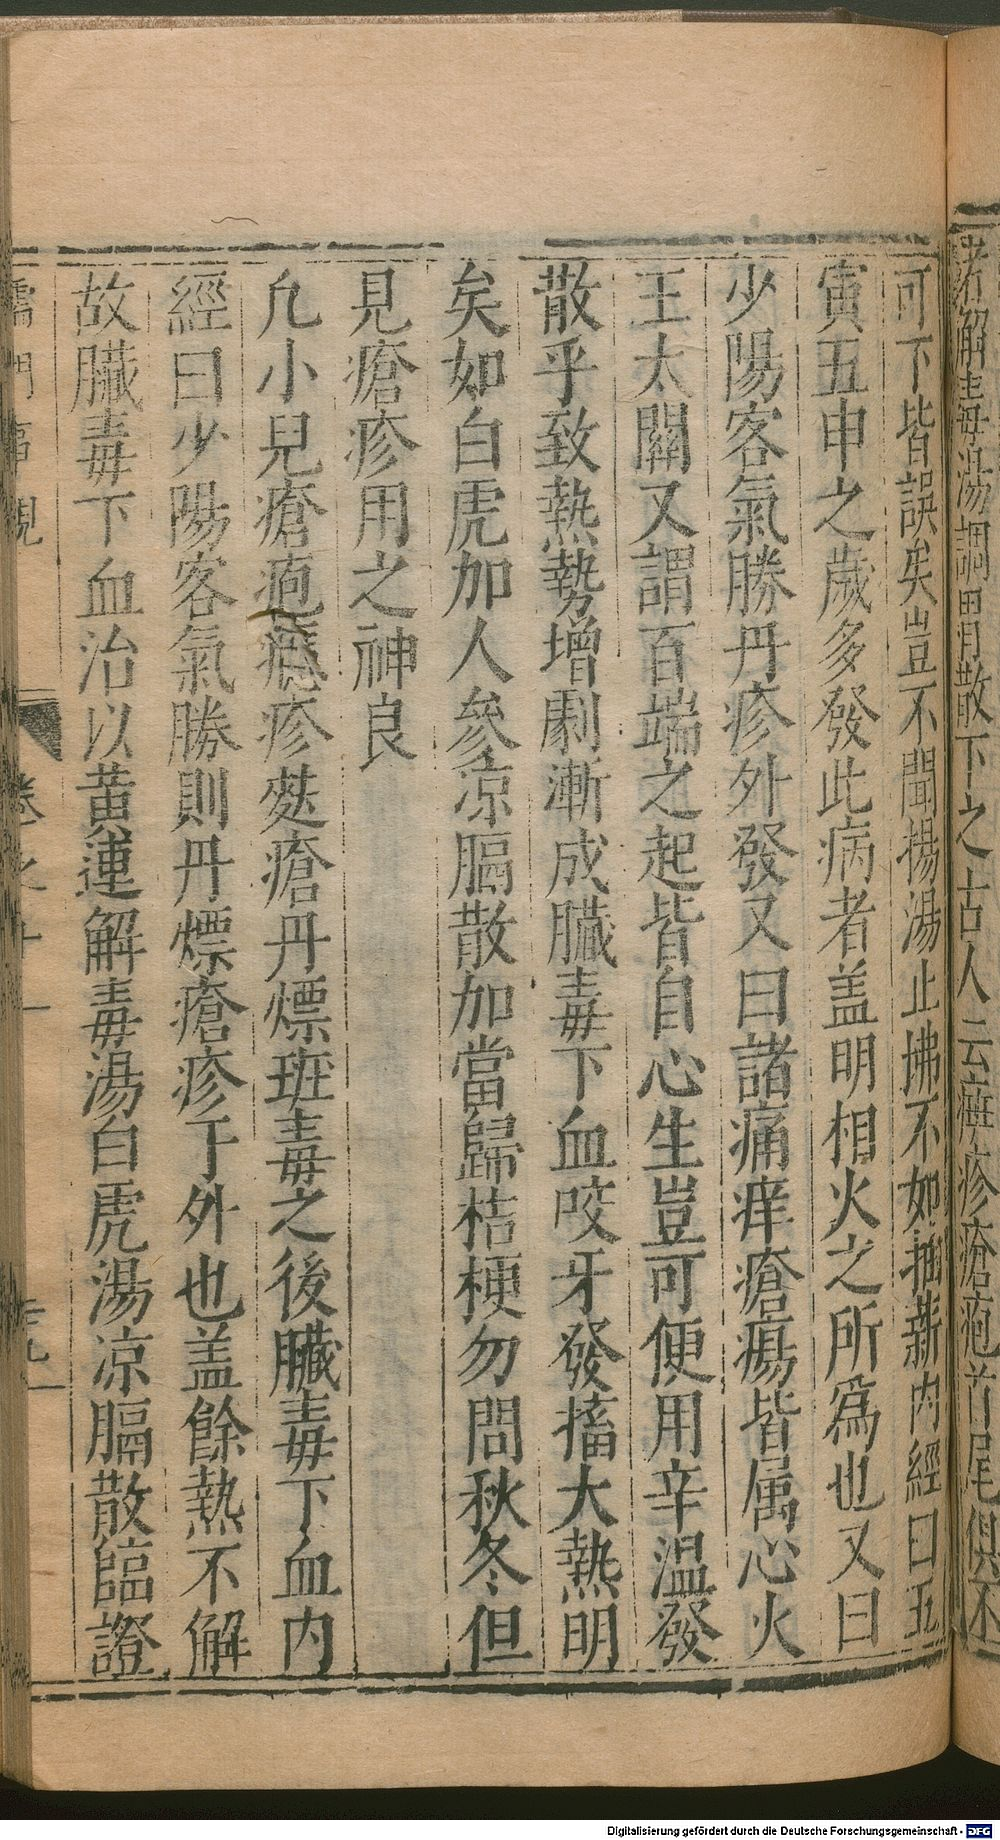 者解毒湯調胃散下之古人云癍疹瘡疱首尾俱不
可下皆誤矣豈不聞揚湯止沸不如抽薪內經曰五
寅五申之歲多發此病者盖明相火之所爲也又曰
少陽客氣勝丹疹外發又曰諸痛痒瘡瘍皆属心火
王太關又謂百端之起皆自心生豈可便用辛溫發
散乎致熱勢增劇漸成臟毒下血咬牙發搐大熱明
矣如白虎加人參凉膈散加當歸桔梗勿問秋冬但
見瘡疹用之神良
凢小兒瘡疱癮疹麩瘡丹熛班毒之後臟毒下血內
經曰少陽客氣勝則丹熛瘡疹于外也盖餘熱不解
故臟毒下血治以黃連解毒湯白虎湯凉膈散臨證
儒門事親 卷之十一
Digitalisierung gefördert durch die Deutsche Forschungsgemeinschaft - DFG